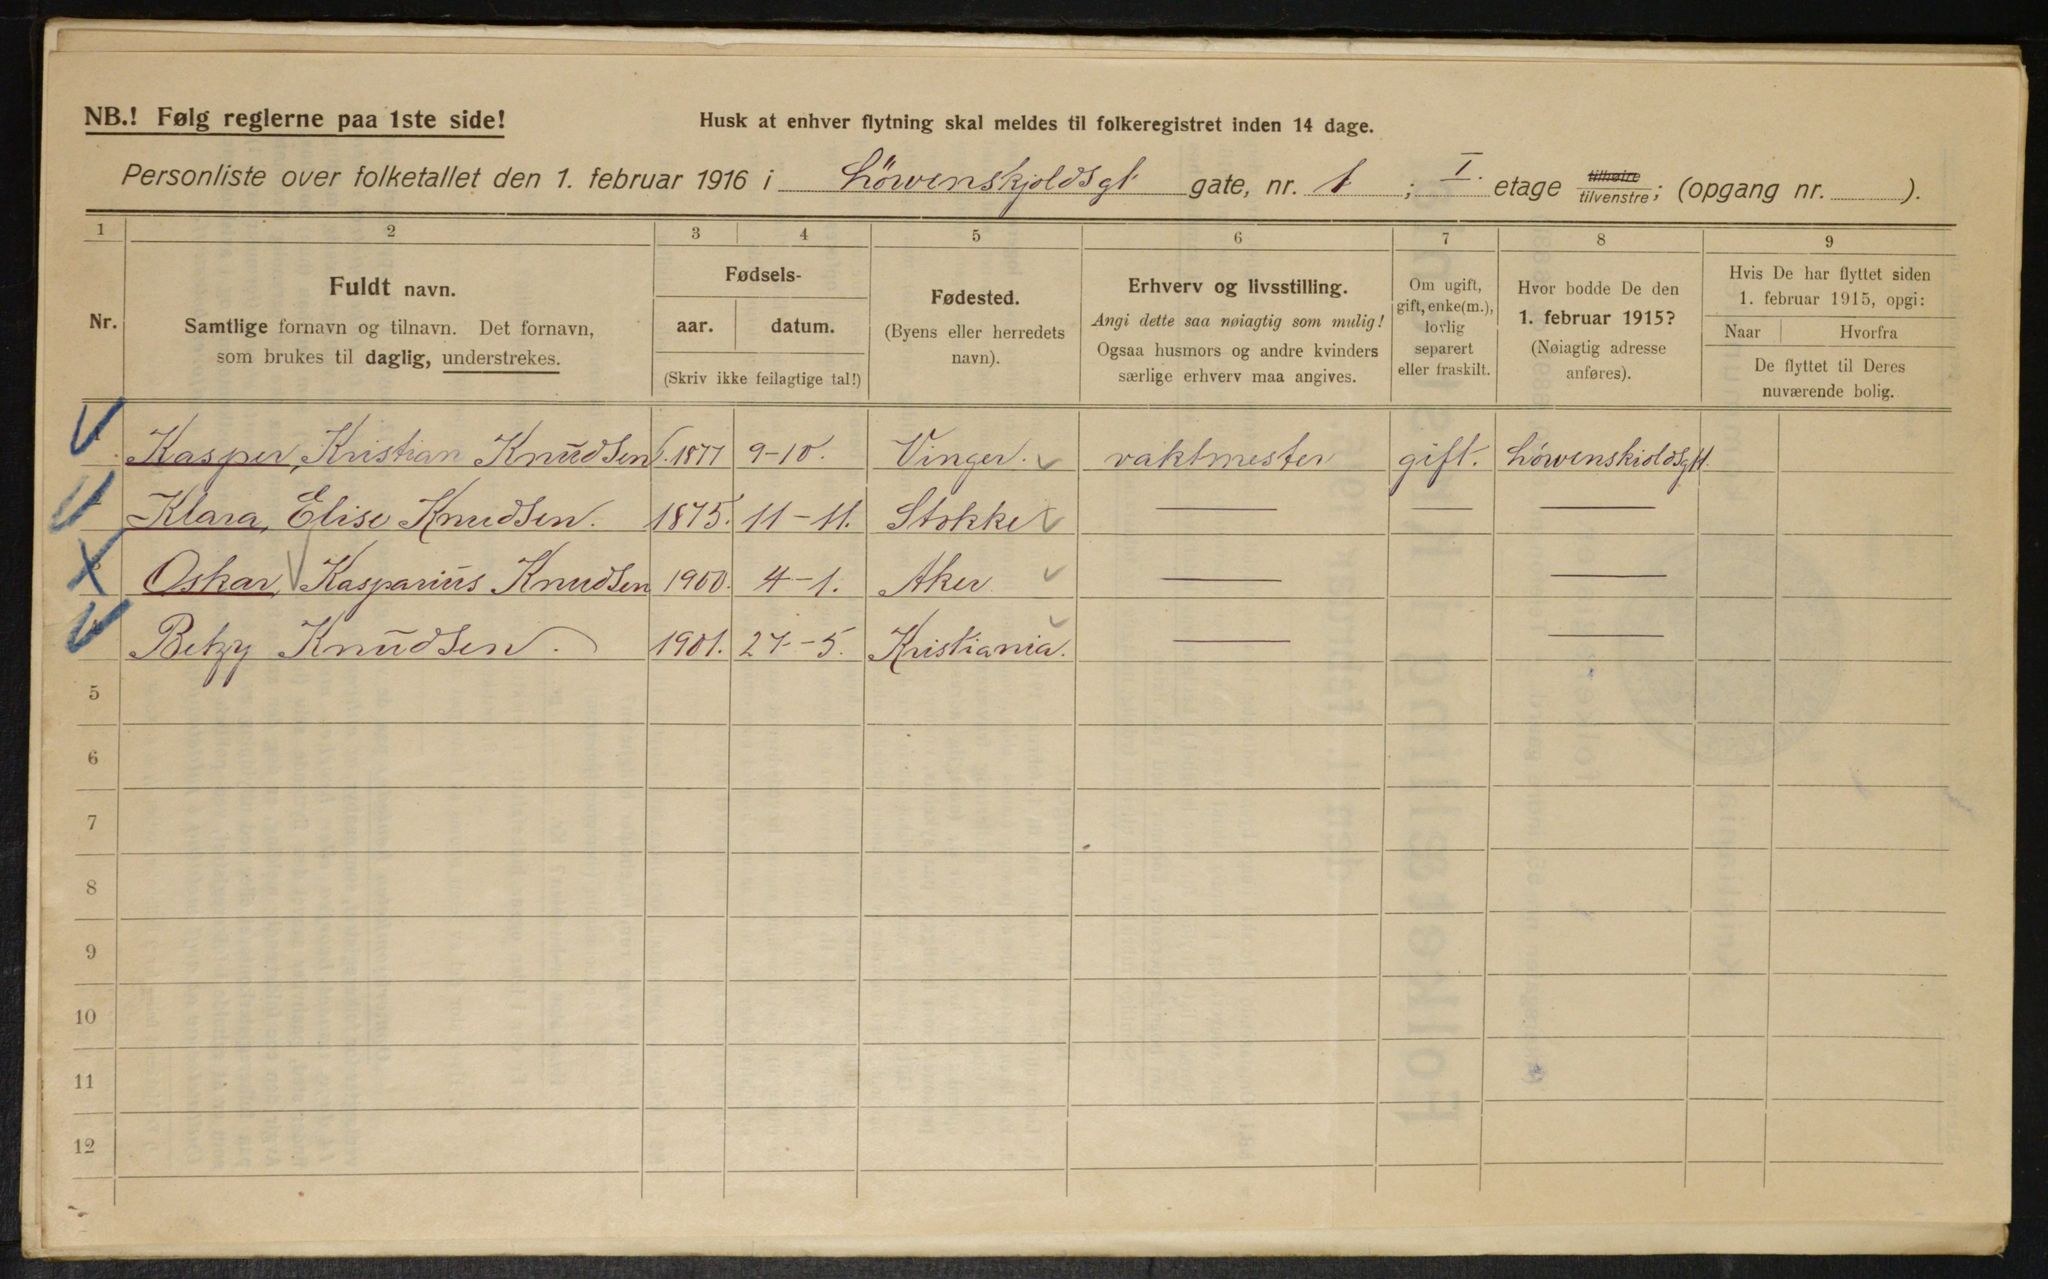 NB.! Følg reglerne paa 1ste side!
Husk at enhver flytning skal meldes til folkeregistret inden 14 dage.
Personliste over folketallet den 1. februar 1916 i Løwenskjoldsgt gate, nr. 1; I. etage tilhøire tilvenstre; (opgang nr. ).
1 2 3 4 5 6 7 8 9
Nr.
Fuldt navn.
Samtlige fornavn og tilnavn. Det fornavn,
som brukes til daglig, understrekes.
Fødsels-
aar. datum.
(Skriv ikke feilagtige tal!)
Fødested.
(Byens eller herredets
navn).
Erhverv og livsstilling.
Angi dette saa nøiagtig som mulig!
Ogsaa husmors og andre kvinders
særlige erhverv maa angives.
Om ugift,
gift, enke(m.),
lovlig
separert
eller fraskilt.
Hvor bodde De den
1. februar 1915?
(Nøiagtig adresse
anføres).
Hvis De har flyttet siden
1. februar 1915, opgi:
Naar Hvorfra
De flyttet til Deres
nuværende bolig.
Kasper, Kristian Knudsen. 1877 9-10. Vinger. vaktmester gift. Løwenskioldsgt 1.
Klara, Elise Knudsen. 1875. 11-11. Stokke — — —
Oskar, Kasparius Knudsen 1900. 4-1. Aker — —
Betzy Knudsen. 1901. 27-5. Kristiania. — —
5
6
7
8
9
10
11
12